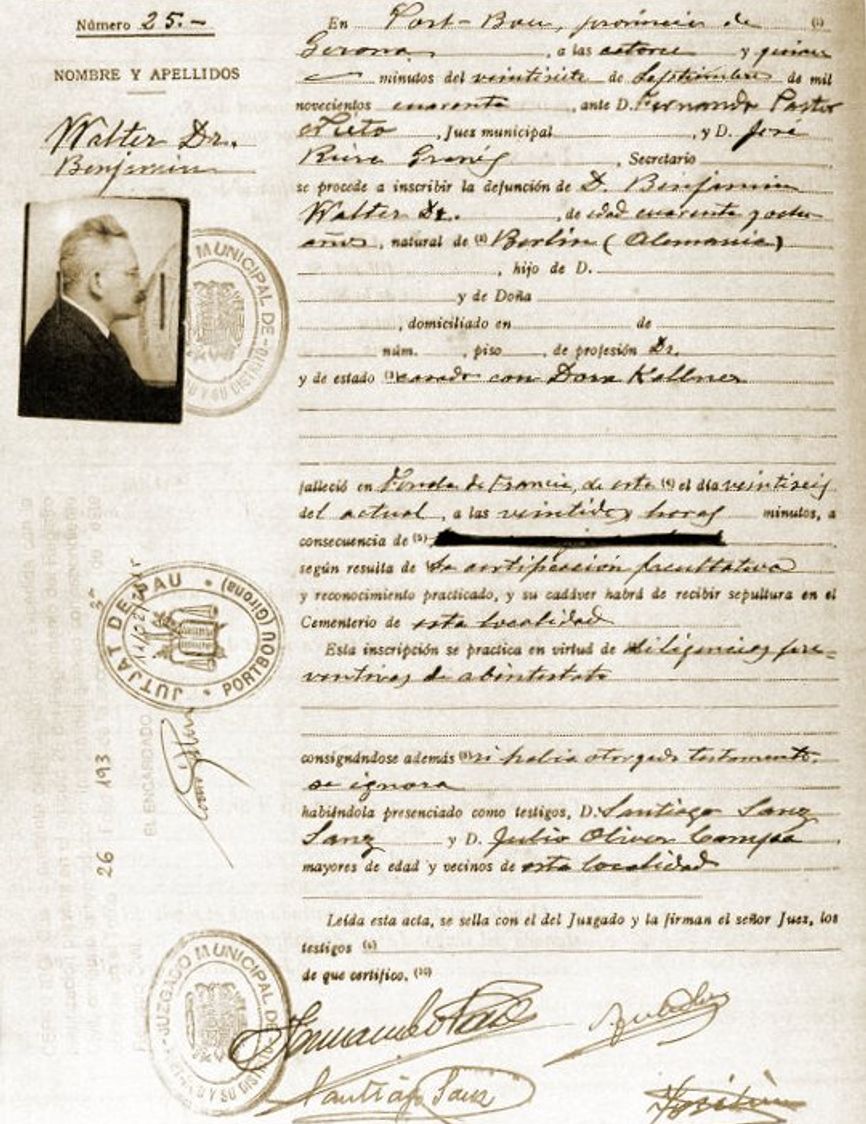 Número 25.-
NOMBRE Y APELLIDOS
Walter Dr.
Benjamin
MUNICIPAL DE
Y SU DISTRITO
JUTJAT DE PAU
PORTBOU (Girona)
EL ENCARGADO
26 193
JUZGADO MUNICIPAL DE
Y SU DISTRITO
En Port-Bou, provincia de (1)
Gerona, a las catorce y quince
minutos del veintisiete de Septiembre de mil
novecientos cuarenta, ante D. Fernando Pastor
Nieto, Juez municipal, y D. José
, Secretario
se procede a inscribir la defunción de D. Benjamin
Walter Dr., de edad cuarenta y ocho
años, natural de (2) Berlín (Alemania)
, hijo de D.
y de Doña
, domiciliado en de
núm. , piso , de profesión Dr.
y de estado (3) casado con Dora Kellner
falleció en Fonda de Francia, de esta (4) el día veintiseis
del actual, a las veintidos horas minutos, a
consecuencia de (5)
según resulta de la certificación facultativa
y reconocimiento practicado, y su cadáver habrá de recibir sepultura en el
Cementerio de esta localidad
Esta inscripción se practica en virtud de diligencias pre-
ventivas de abintestato
consignándose además (8) si había otorgado testamento,
se ignora
habiéndola presenciado como testigos, D. Santiago Sanz
Sanz y D. Julio Oliver Campos
mayores de edad y vecinos de esta localidad
Leída esta acta, se sella con el del Juzgado y la firman el señor Juez, los
testigos
de que certifico. (10)
Fernando Pastor
Santiago Sanz